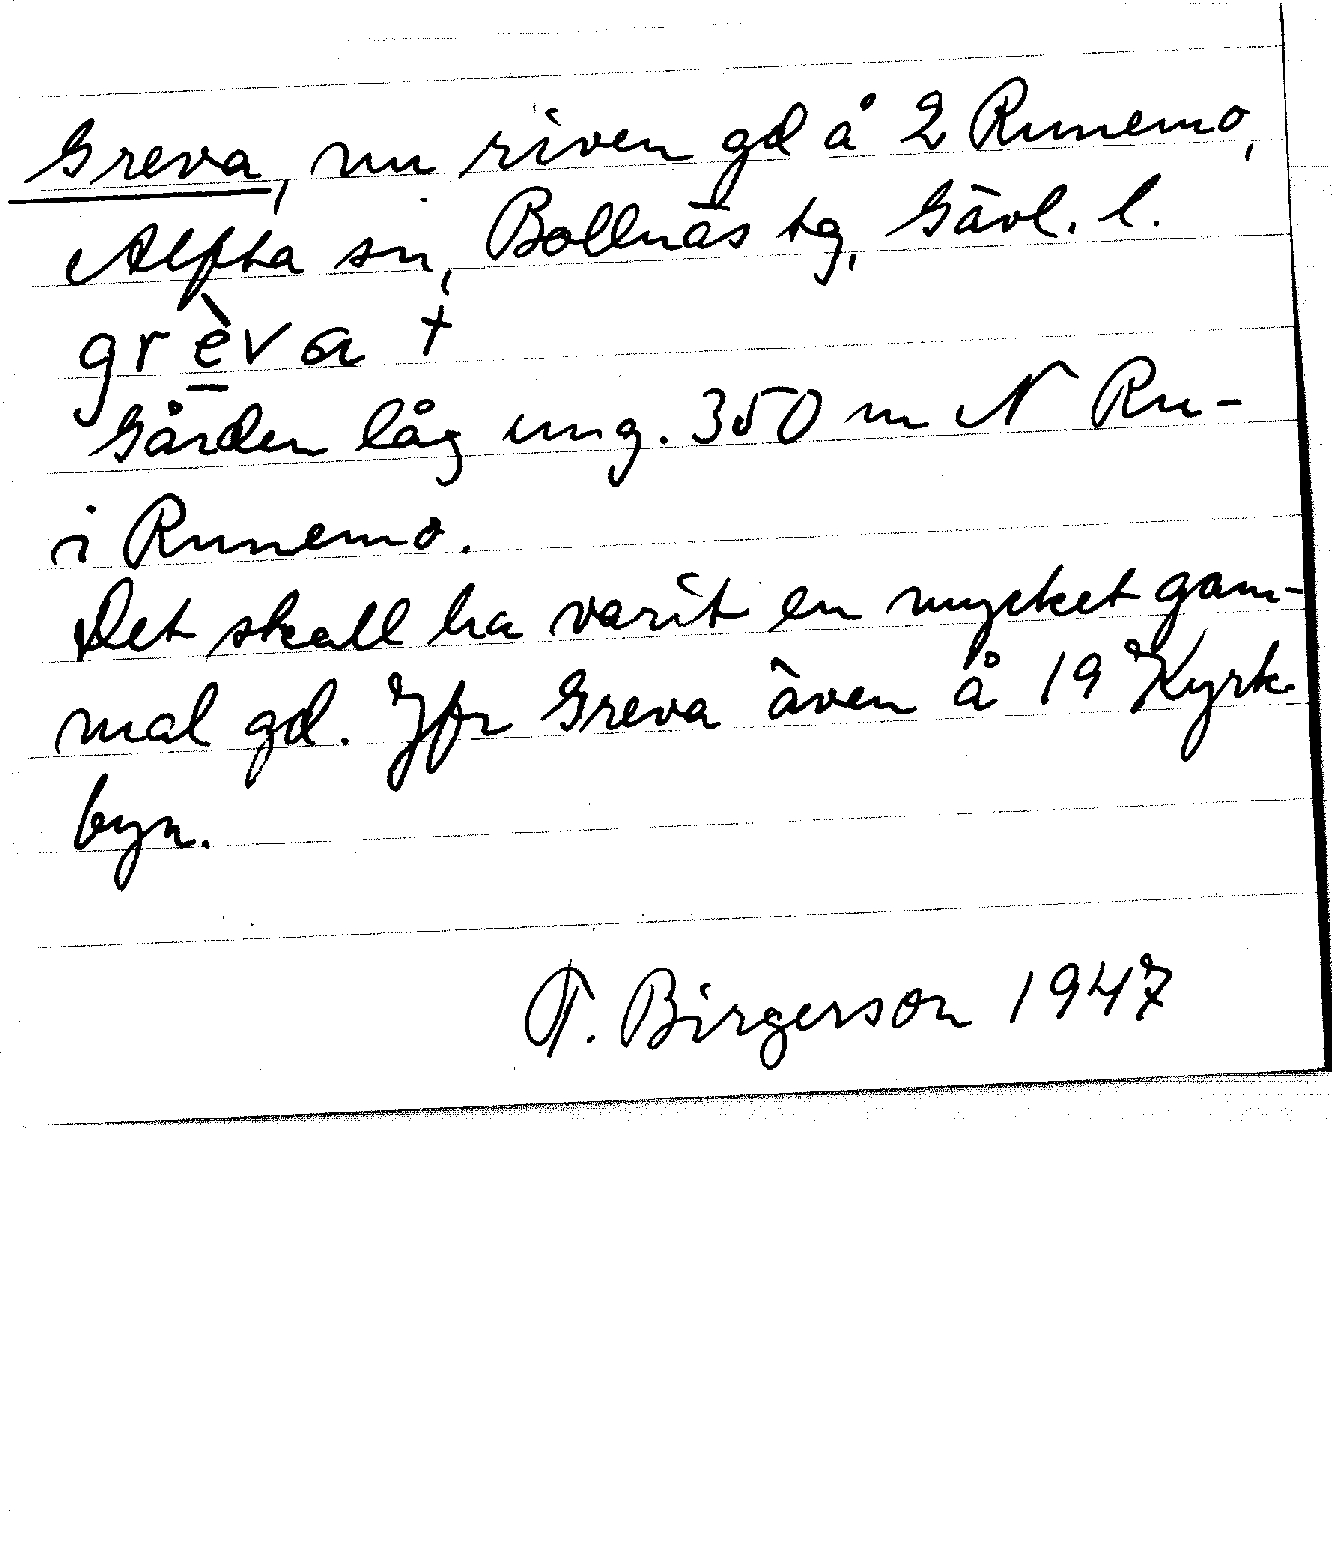 Greva, nu riven gd å 2 Runemo,
Alfta sn, Bollnäs tg, Gävl. l.
grèva +
Gården låg ung. 350 m N Ru-
i Runemo.
Det skall ha varit en mycket gam-
mal gd. Jfr Greva även å 19 Kyrk-
byn.
T. Birgerson 1947